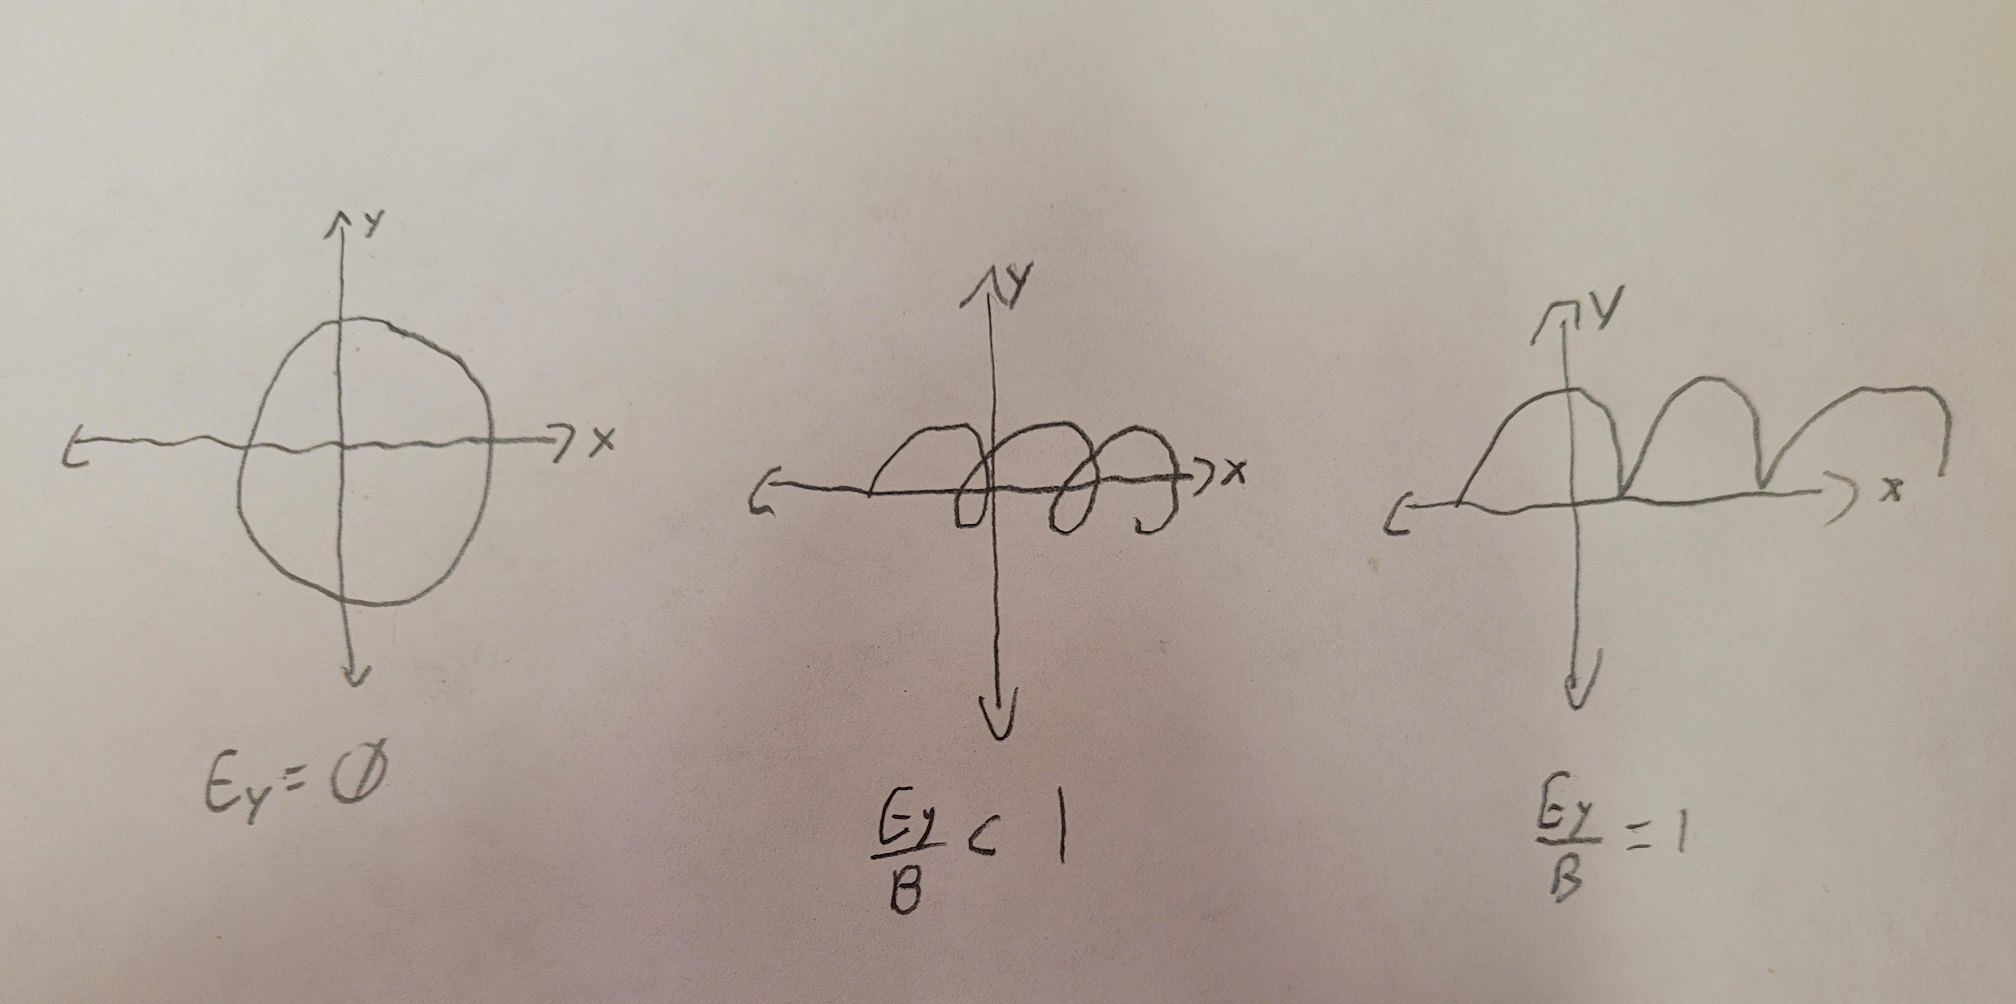 y
x
E_y = ∅
y
x
E_y/B < 1
y
x
E_y/B = 1